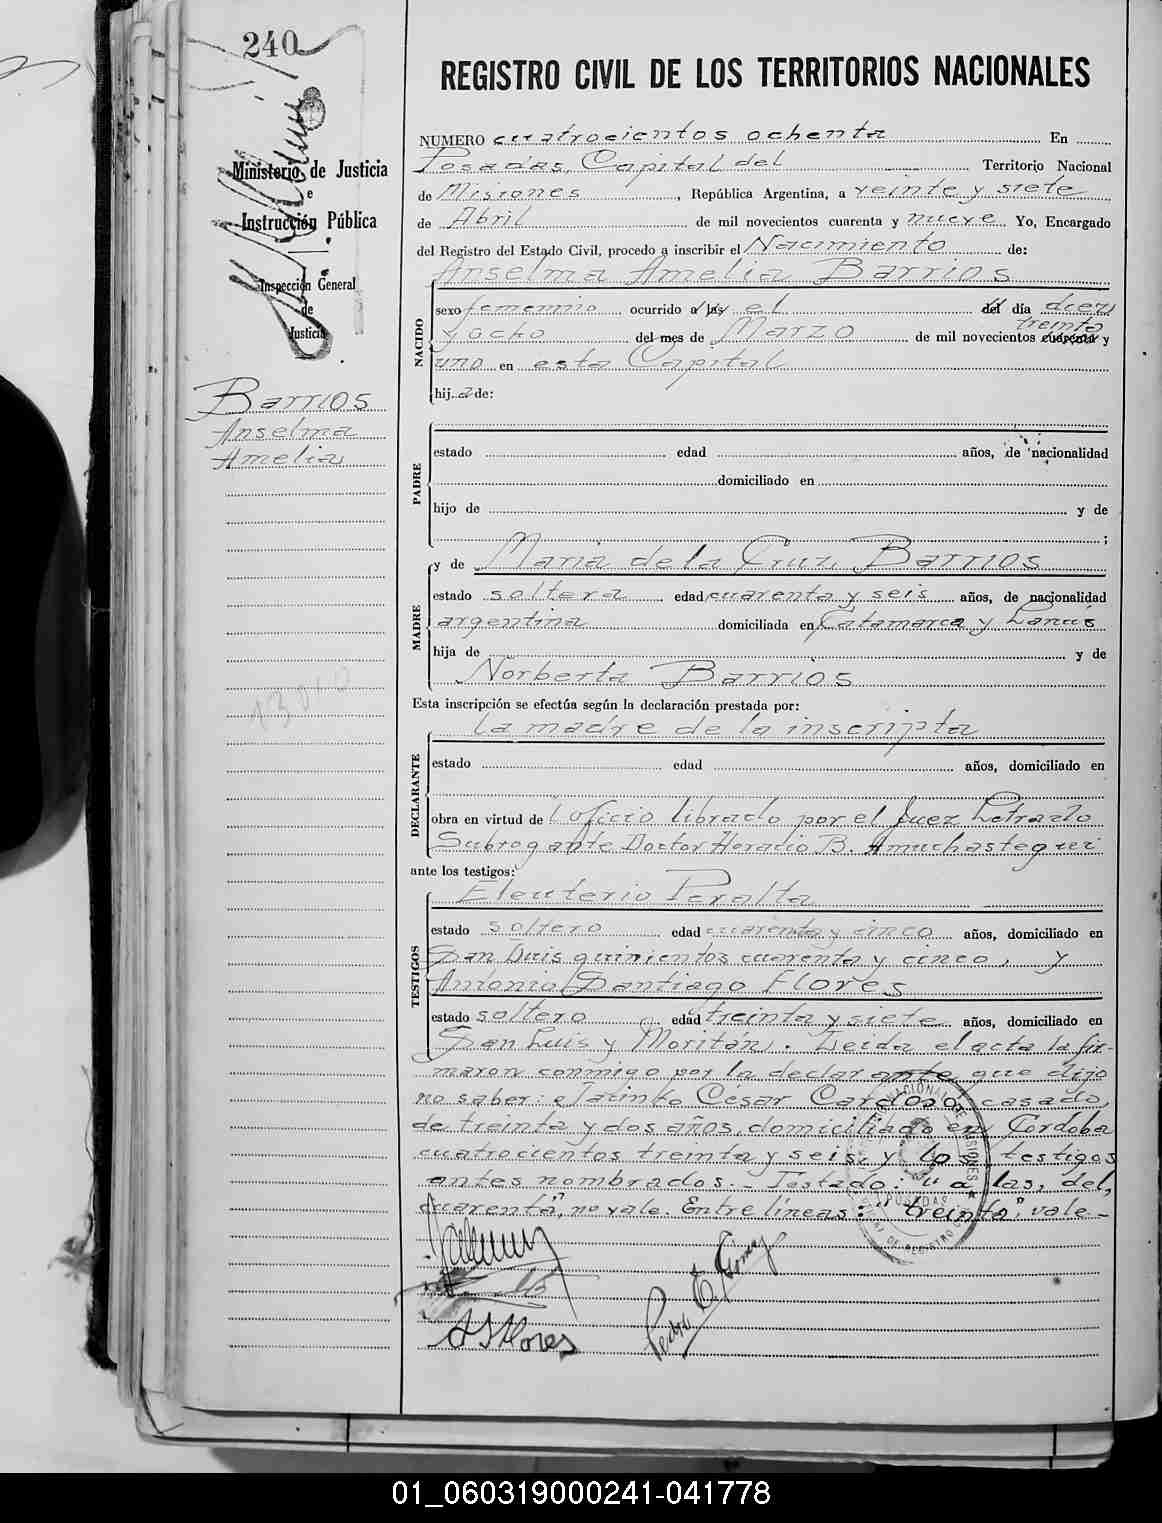 240
REGISTRO CIVIL DE LOS TERRITORIOS NACIONALES
Ministerio de Justicia
e
Instrucción Pública
Inspección General
de
Justicia
Barrios
Anselma
Amelia
NUMERO cuatrocientos ochenta En
Posadas, Capital del Territorio Nacional
de Misiones, República Argentina, a veinte y siete
de Abril de mil novecientos cuarenta y nueve Yo, Encargado
del Registro del Estado Civil, procedo a inscribir el Nacimiento de:
Anselma Amelia Barrios
NACIDO
sexo femenino ocurrido a las el del día diez
y ocho del mes de Marzo de mil novecientos cuarenta y
treinta
uno en esta Capital
hija de:
PADRE
estado edad años, de nacionalidad
domiciliado en
hijo de y de
;
MADRE
y de Maria de la Cruz Barrios
estado soltera edad cuarenta y seis años, de nacionalidad
argentina domiciliada en Catamarca y Lanús
hija de y de
Norberta Barrios
Esta inscripción se efectúa según la declaración prestada por:
La madre de la inscripta
DECLARANTE
estado edad años, domiciliado en
obra en virtud de oficio librado por el Juez Letrado
Subrogante Doctor Horacio B. Amuchastegui
ante los testigos:
Eleuterio Peralta
TESTIGOS
estado soltero edad cuarenta y cinco años, domiciliado en
San Luis quinientos cuarenta y cinco, y
Antonio Santiago Flores
estado soltero edad treinta y siete años, domiciliado en
San Luis y Moritán. Leida el acta la fir-
maron conmigo por la declarante que dijo
no saber: Jacinto César Cardozo, casado,
de treinta y dos años, domiciliado en Córdoba
cuatrocientos treinta y seis, y los testigos
antes nombrados.- Testado: "a las, del,
cuarenta", no vale. Entre lineas: "treinta", vale-
A S Flores
Pedro E. Gómez
01_060319000241-041778